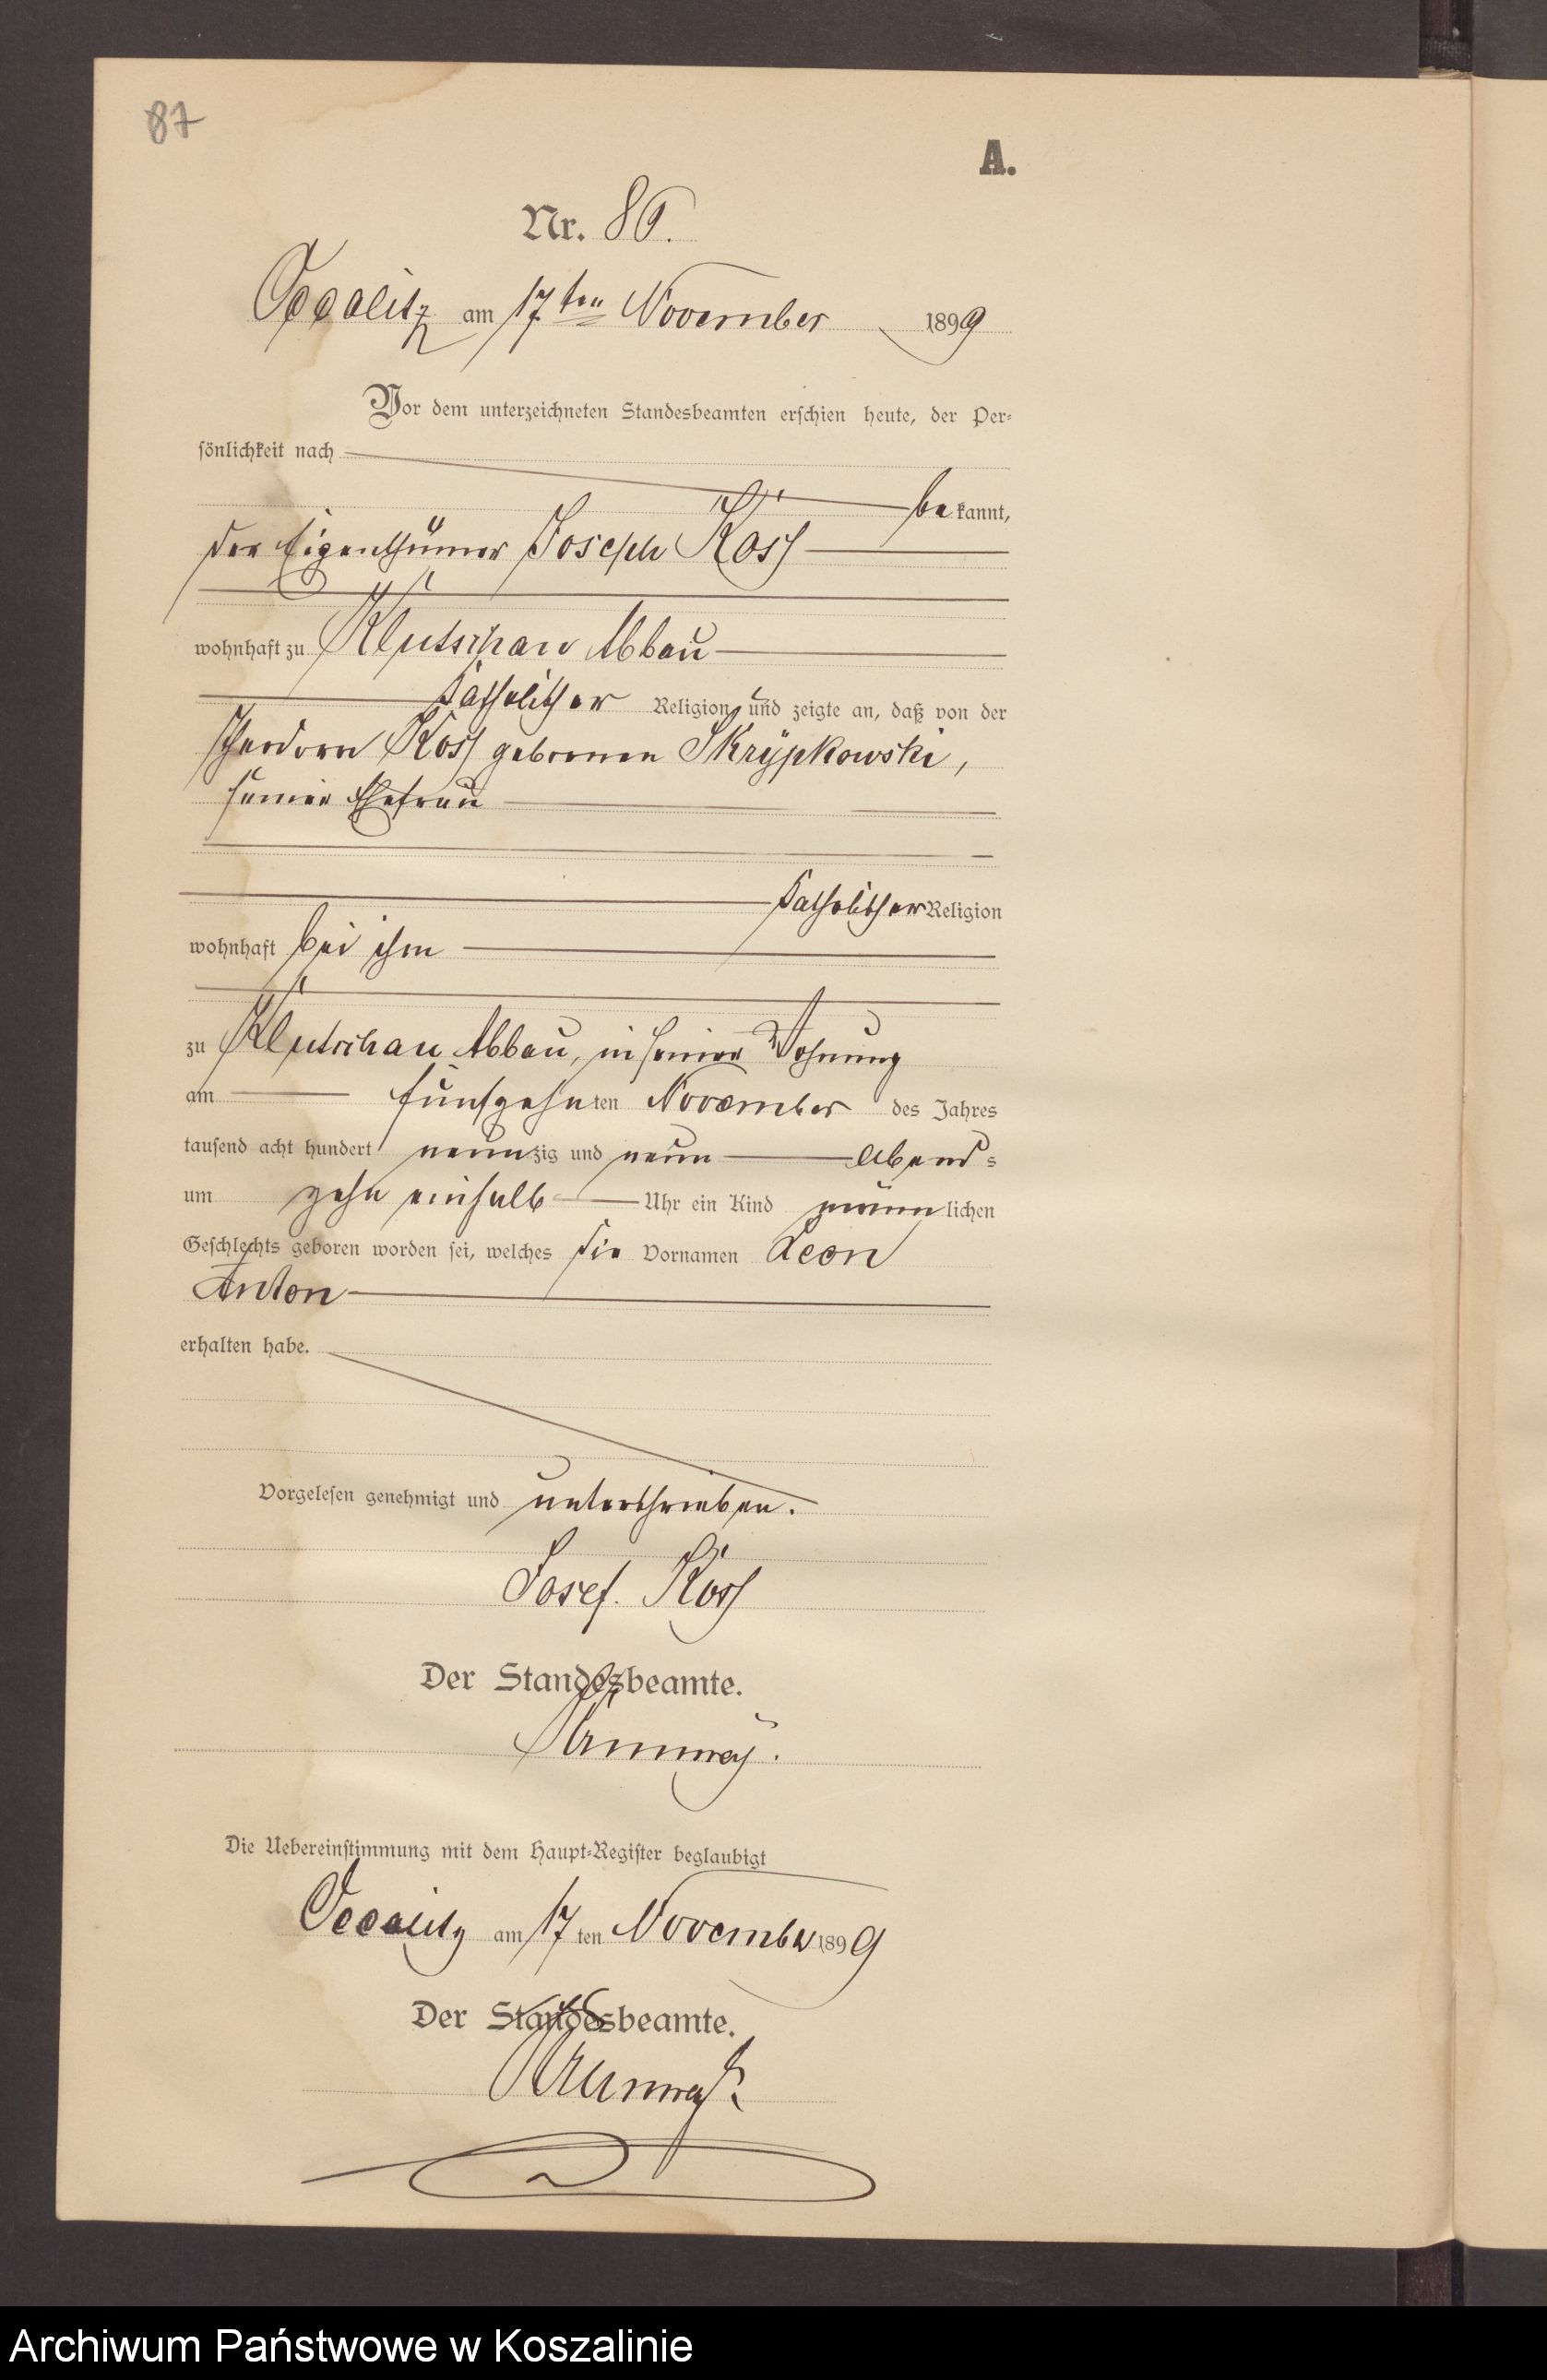 87
A.
Nr. 86.
Occalitz am 17ten November 1899
Vor dem unterzeichneten Standesbeamten erschien heute, der Per-
sönlichkeit nach
bekannt,
der Eigenthümer Joseph Koss
wohnhaft zu Klutschau Abbau
katholischer Religion und zeigte an, daß von der
Koss geborenen Skrypkowski,
seiner Ehefrau
katholischer Religion
wohnhaft bei ihm
zu Klutschau Abbau, in seiner Wohnung
am fünfzehnten November des Jahres
tausend acht hundert neunzig und neun Abends
um zehn einhalb Uhr ein Kind männlichen
Geschlechts geboren worden sei, welches die Vornamen Leon
Anton
erhalten habe.
Vorgelesen genehmigt und unterschrieben.
Josef Koss
Der Standesbeamte.
Die Uebereinstimmung mit dem Haupt-Register beglaubigt
Occalitz am 17ten November 1899
Der Standesbeamte.
Archiwum Państwowe w Koszalinie